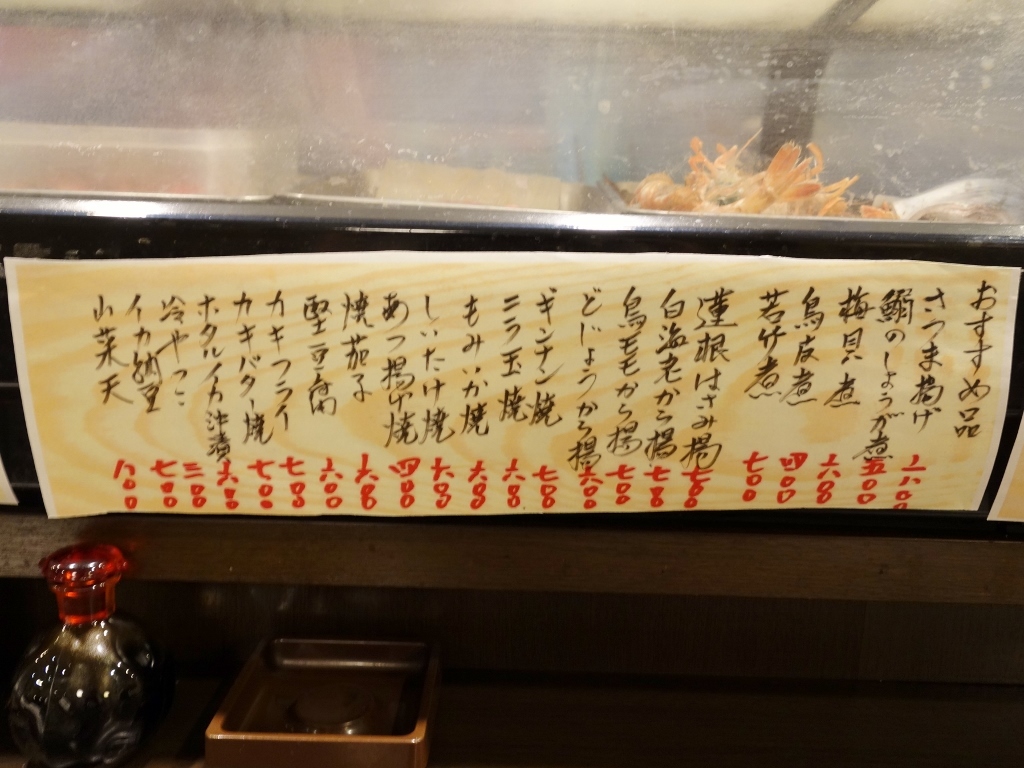 おすすめ品
さつま揚げ 六〇〇
鰯のしょうが煮 五〇〇
梅貝煮 六〇〇
鳥皮煮 四〇〇
若竹煮 七〇〇
蓮根はさみ揚 七〇〇
白海老から揚 七〇〇
鳥モモから揚 七〇〇
どじょうから揚 六〇〇
ギンナン焼 七〇〇
ニラ玉焼 六〇〇
もみいか焼 六〇〇
しいたけ焼 六〇〇
あつ揚げ焼 四〇〇
焼茄子 六〇〇
堅豆腐 六〇〇
カキフライ 七〇〇
カキバター焼 七〇〇
ホタルイカ沖漬 六〇〇
冷やっこ 三〇〇
イカ納豆 七〇〇
山菜天 八〇〇